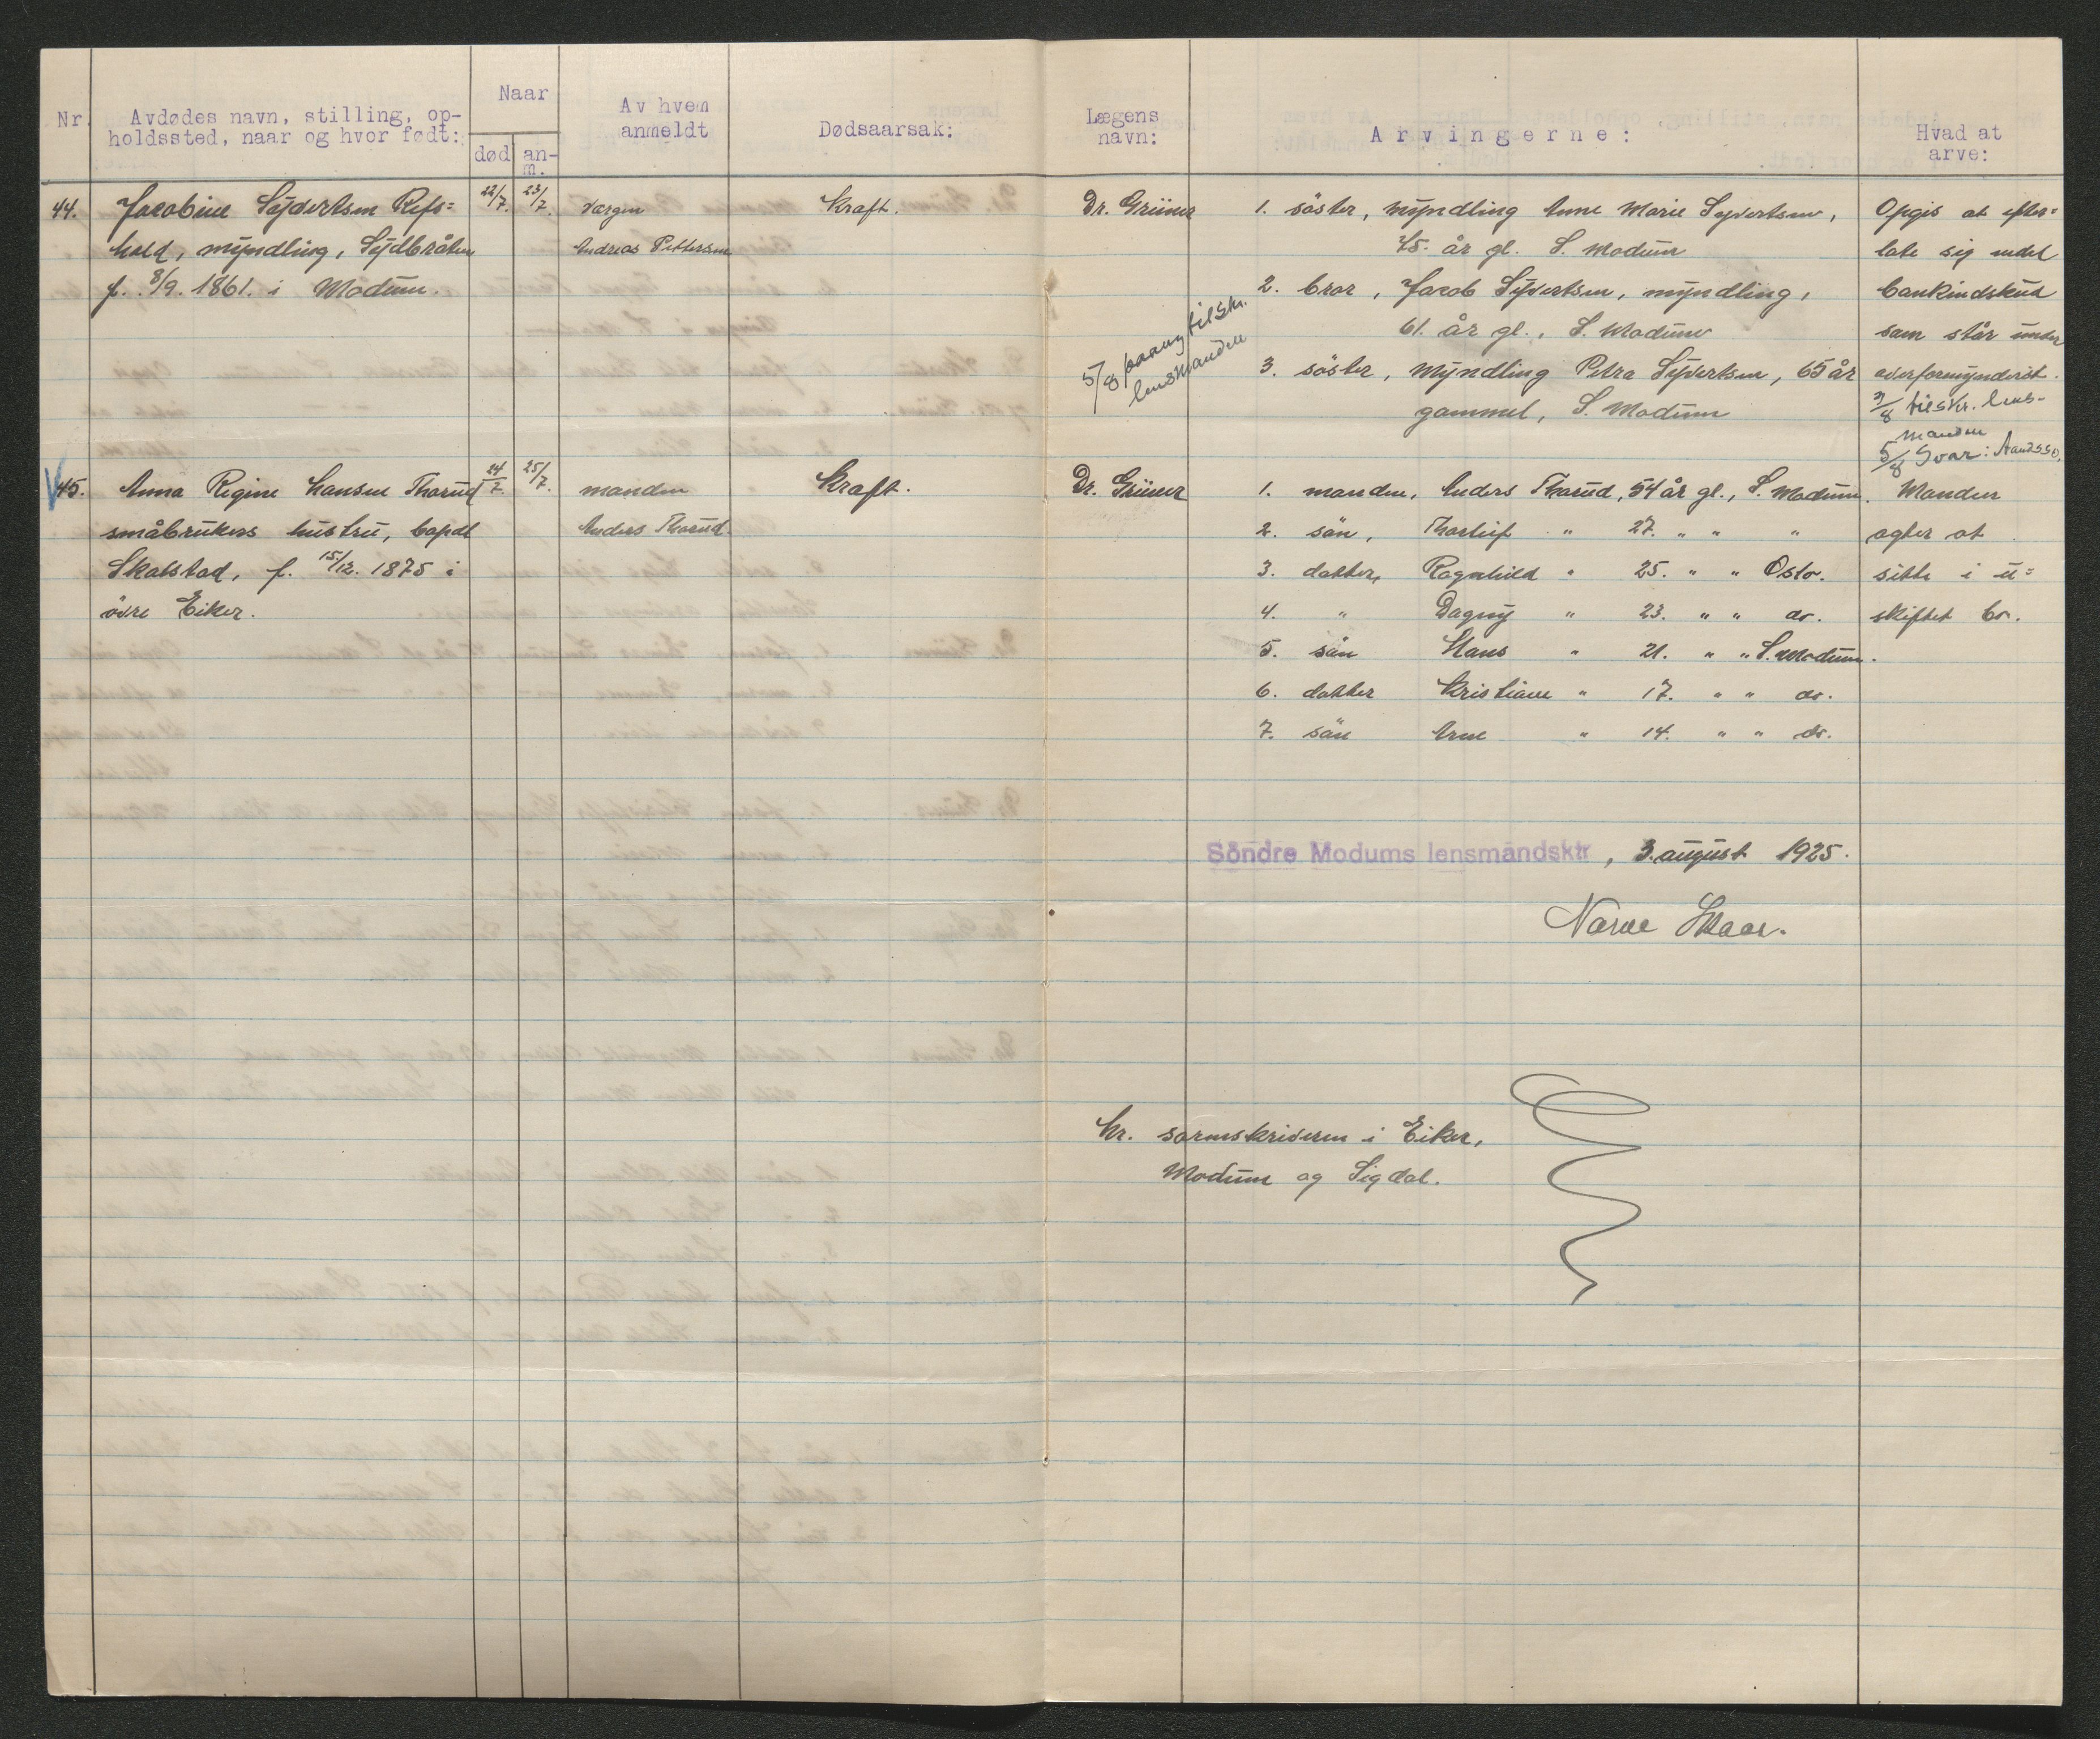 Nr.
Avdødes navn, stilling, op-
holdssted, naar og hvor født:
Naar
død
an-
m.
Av hvem
anmeldt
Dødsaarsak:
Lægens
navn:
Arvingerne:
Hvad at
arve:
44. Jacobine Syvertsen Refs=
hold, myndling, Sydbråten
f. 8/9. 1861. i Modum.
22/7.
23/7.
Værgen
Andreas Pettersen
Kraft.
Dr. Grüner
1. söster, myndling Anne Marie Syvertsen,
75. år gl. S. Modum
2. bror, Jacob Syvertsen, myndling,
61. år gl., S. Modum
3. söster, myndling Petra Syvertsen, 65 år
gammel, S. Modum
5/8 tilskr.
lensmanden
Opgis at efter=
late sig endel
bankindskud
som står under
overformynderiet.
3/8 tilskr. lens-
manden
5/8 Svar:
45. Anna Regine Hansen Thorud
småbrukers hustru, bopdl
Skalstad, f. 15/12. 1875 i
övre Eiker.
24/7
25/7.
manden
Anders Thorud.
Kraft.
Dr. Grüner
1. manden, Anders Thorud, 54 år gl., S. Modum.
2. sön, Thorleif " 27. " " "
3. datter, Ragnhild " 25. " " Oslo.
4. " Dagny " 23. " " do.
5. sön Hans " 21. " " S. Modum.
6. datter Kristiane " 17. " " do.
7. sön Arne " 14. " " do.
Manden
agter at
sitte i u=
skiftet bo.
Söndre Modums lensmandsktr, 3. august 1925.
Narve Skaar.
Hr. sorenskriveren i Eiker,
Modum og Sigdal.